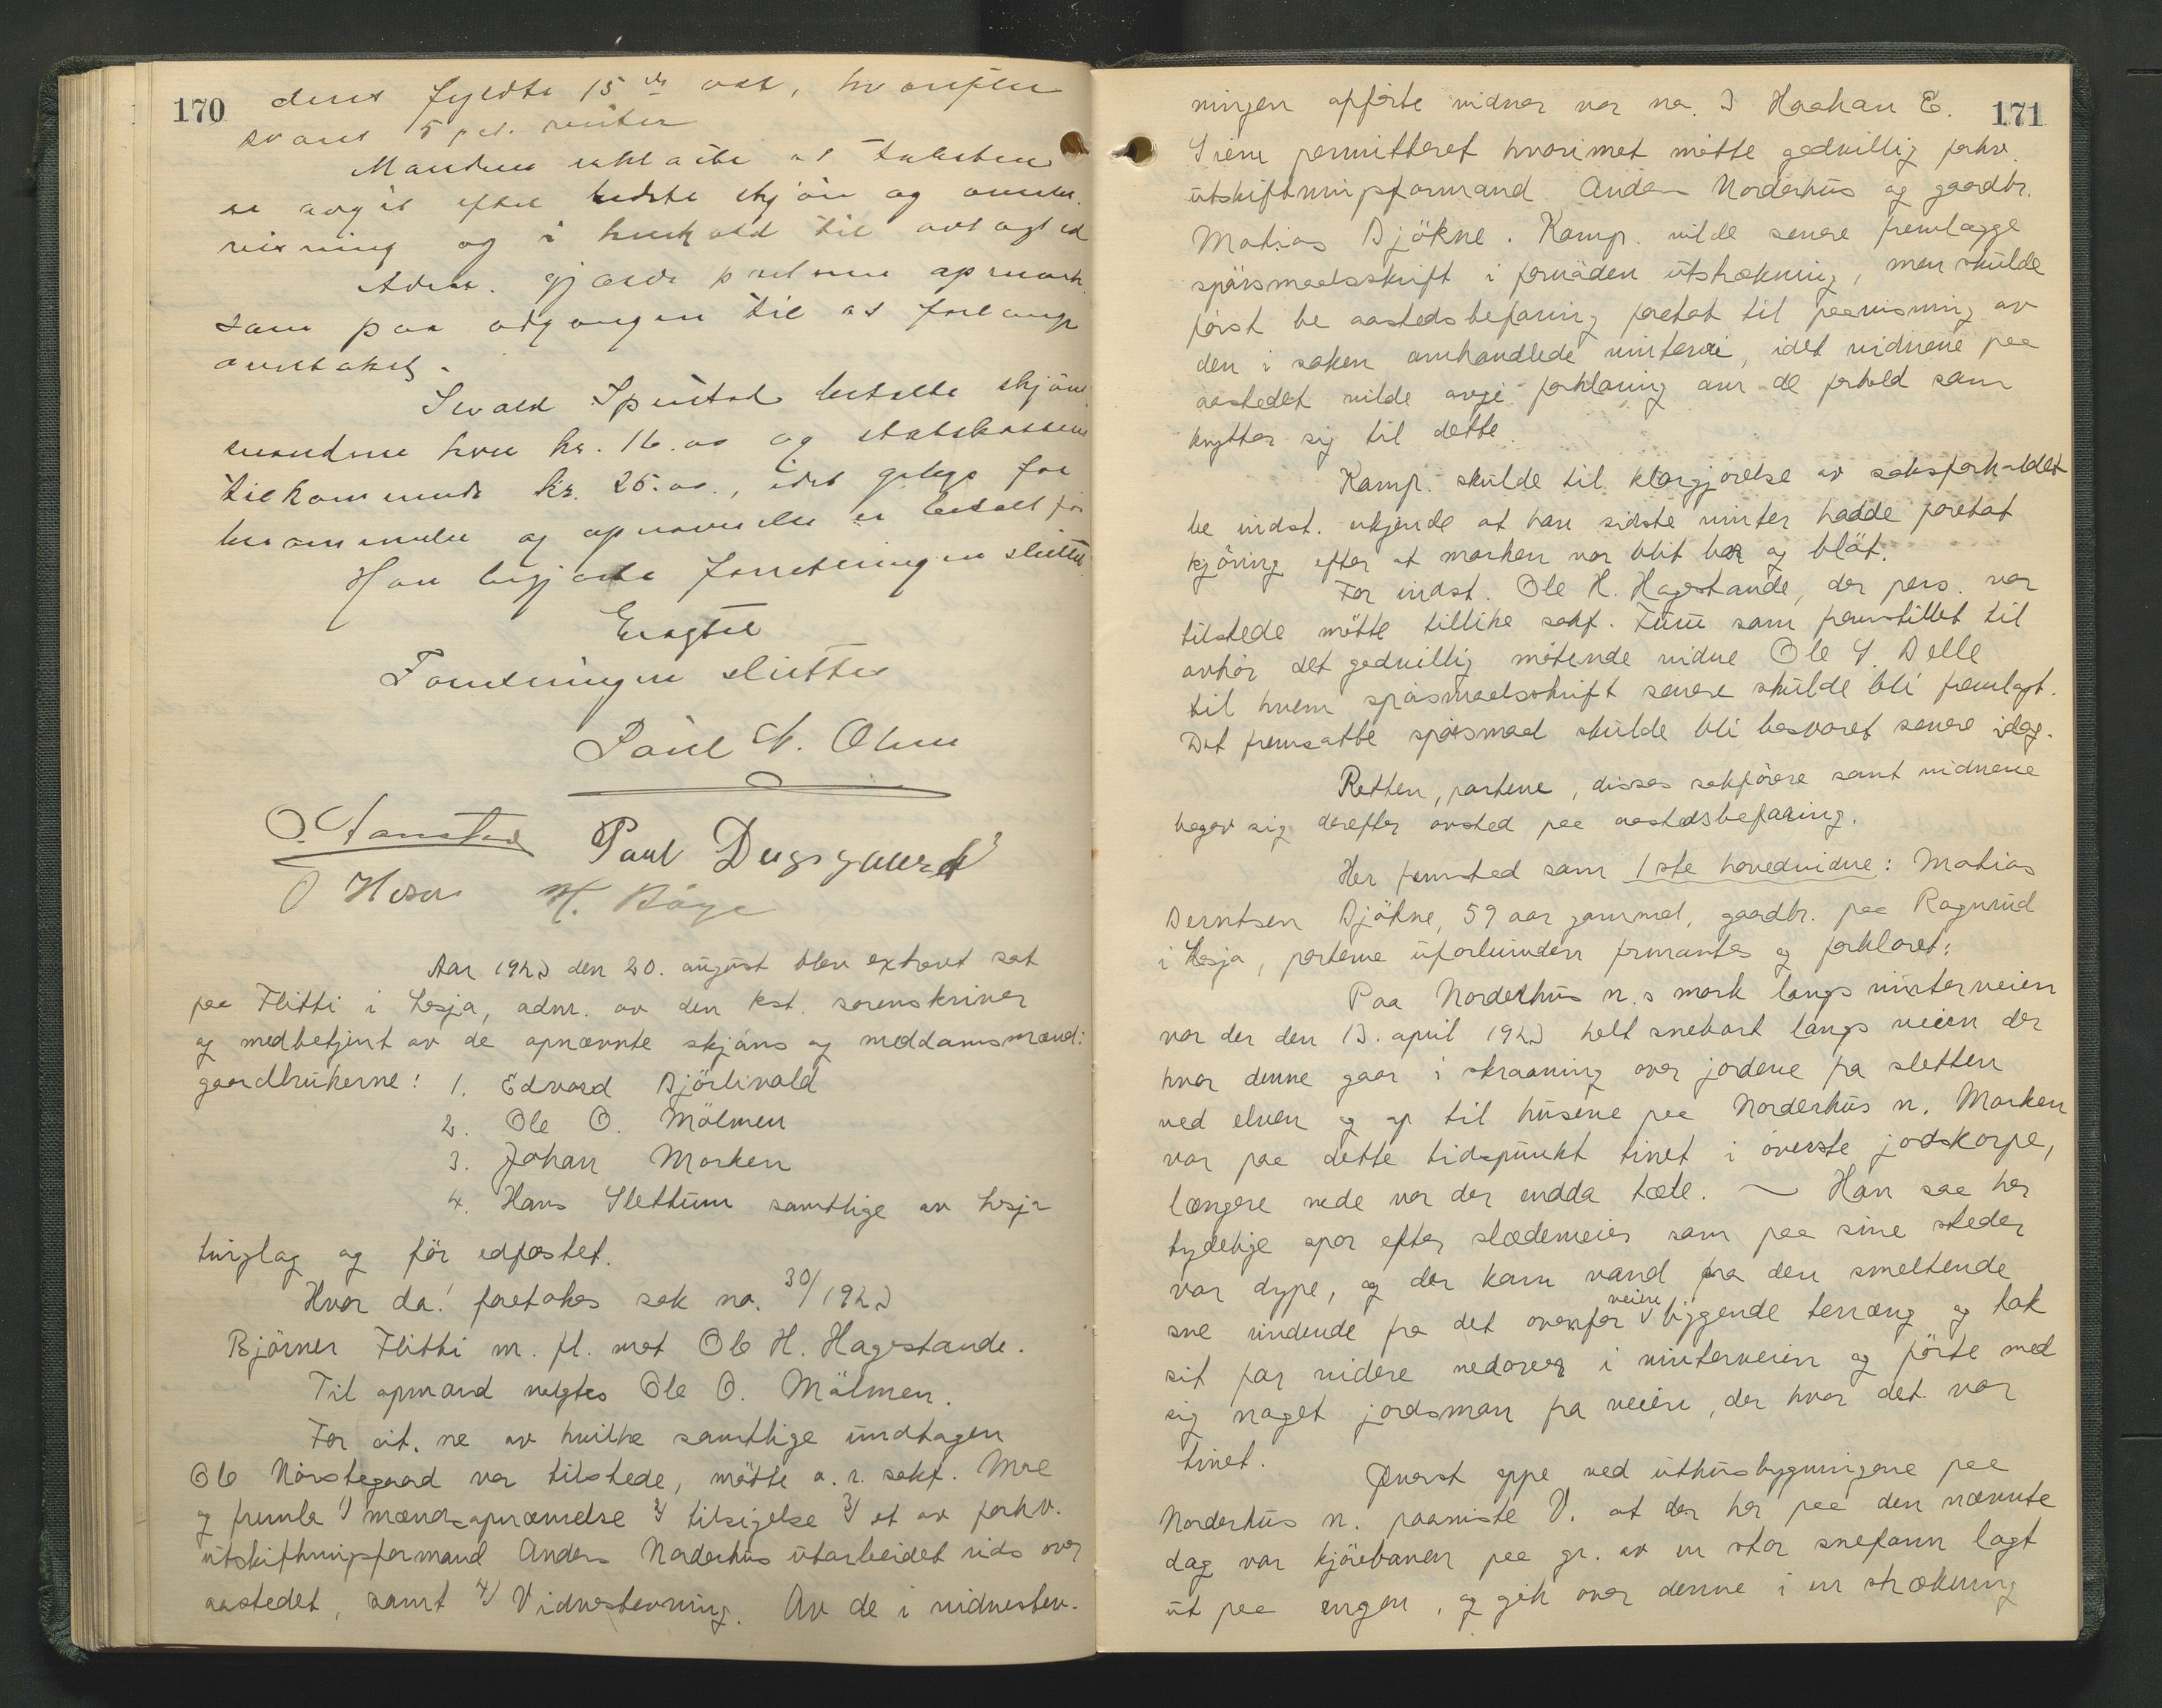 170
deres fyldte 15de aar, hvorefter
svares 5 pct. renter
Mændene erklærte at taksten
er avgit efter bedste skjøn og overbe-
visning og i henhold til avlagt ed
Adm. gjorde partene opmerk-
som paa adgangen til at forlange
overtakst.
betalte skjøns-
mændene hver kr. 16.00 og statskassens
tilkommende kr. 25.00, idet gebyr for
berammelse og opnævnelse er betalt før
Han begjærte forretningen sluttet.
Eragtet
Forretningen sluttes
Paul N. Olsen
Paul Dugsgaard
Aar 1923 den 20. august blev extraret sat
paa Flitti i Lesja, adm. av den kst. sorenskriver
og medbetjent av de opnævnte skjøns og meddomsmænd:
gaardbrukerne: 1. Edvard Bjørlivold
2. Ole O. Mölmen
3. Johan Morken
4. Hans Slettum samtlige av Lesja
tinglag og før edfæstet.
Hvor da! foretokes sak no. 30/1923
Björner Flitti m. fl. mot Ole H. Hagestande.
Til opmand valgtes Ole O. Mölmen.
For cit. ne av hvilke samtlige undtagen
Ole Norstegaard var tilstede, mötte o. r. sakf. Moe
og fremla 1) mændsopnævnelse 2) tilsigelse 3) et av forhv.
utskiftningsformand Anders Norderhus utarbeidet rids over
aastedet, samt 4) Vidnestevning. Av de i vidnestev-
171
ningen opførte vidner var no. 3 Haakan E.
permitteret hvorimot mötte godvillig forhv.
utskiftningsformand Anders Norderhus og gaardbr.
Matias Björkne. Komp. vilde senere fremlægge
spörsmaalsskrift i fornöden utstrækning, men skulde
först be aastedsbefaring foretat til paavisning av
den i saken omhandlede vintervei, idet vidnene paa
aastedet vilde avgi forklaring om de forhold som
knytter sig til dette.
Komp. skulde til klargjörelse av saksforholdet
be indst. erkjende at han sidste vinter hadde foretat
kjöring efter at marken var blit bar og blöt.
For indst. Ole H. Hagestande, der pers. var
tilstede mötte tillike sakf. Tuu som fremstillet til
avhör det godvillig mötende vidne Ole S. Delle
til hvem spörsmaalsskrift senere skulde bli fremlagt.
Det fremsatte spörsmaal skulde bli besvaret senere idag.
Retten, partene, disses sakförere samt vidnene
begav sig derefter avsted paa aastedsbefaring.
Her fremsted som 1ste hovedvidne: Matias
Berntsen Björkne, 59 aar gammel, gaardbr. paa Ragnrud
i Lesja, partene uforbunden formantes og forklaret:
Paa Norderhus n.s mark langs vinterveien
var der den 13. april 1923 helt snebart langs veien der
hvor denne gaar i skraaning over jordene fra sletten
ved elven og op til husene paa Norderhus n. Marken
var paa dette tidspunkt tinet i överste jordskorpe,
længere nede var der endda tæle. — Han saa her
tydelige spor efter slædemeier som paa sine steder
var dype, og der kom vand fra den smeltende
sne rindende fra det ovenfor veien liggende terræng og tok
sit far videre nedover i vinterveien og förte med
sig noget jordsmon fra veien, der hvor det var
tinet.
Överst oppe ved uthusbygningene paa
Norderhus n. paaviste V. at der her paa den nævnte
dag var kjörebanen paa gr. av en stor snefonn lagt
ut paa engen, og gik over denne i en strækning